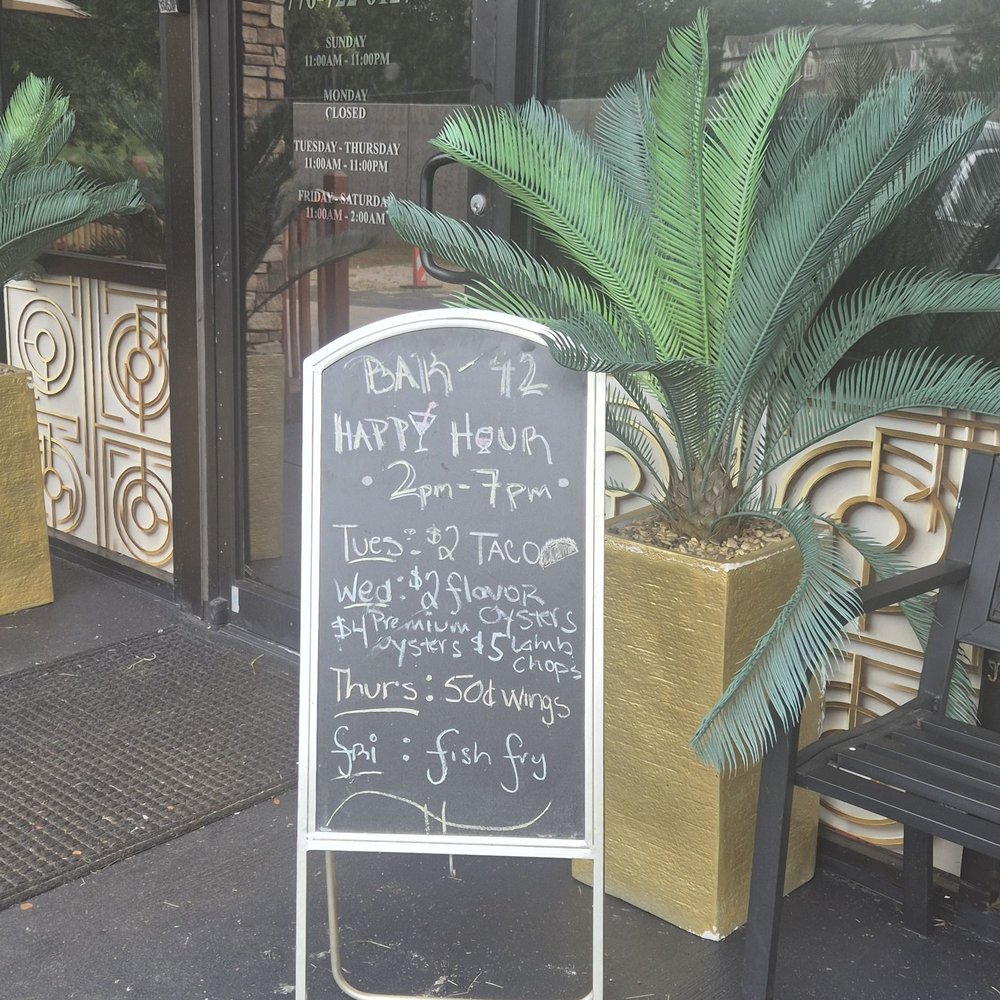 SUNDAY
11:00AM - 11:00PM
MONDAY
CLOSED
TUESDAY - THURSDAY
11:00AM - 11:00PM
FRIDAY - SATURDAY
11:00AM - 2:00AM
BAR - 42
HAPPY HOUR
• 2pm - 7pm •
Tues: $2 TACO
Wed: $2 flavor
Oysters
$4 Premium
oysters $5 Lamb
Chops
Thurs: 50¢ wings
fri : fish fry